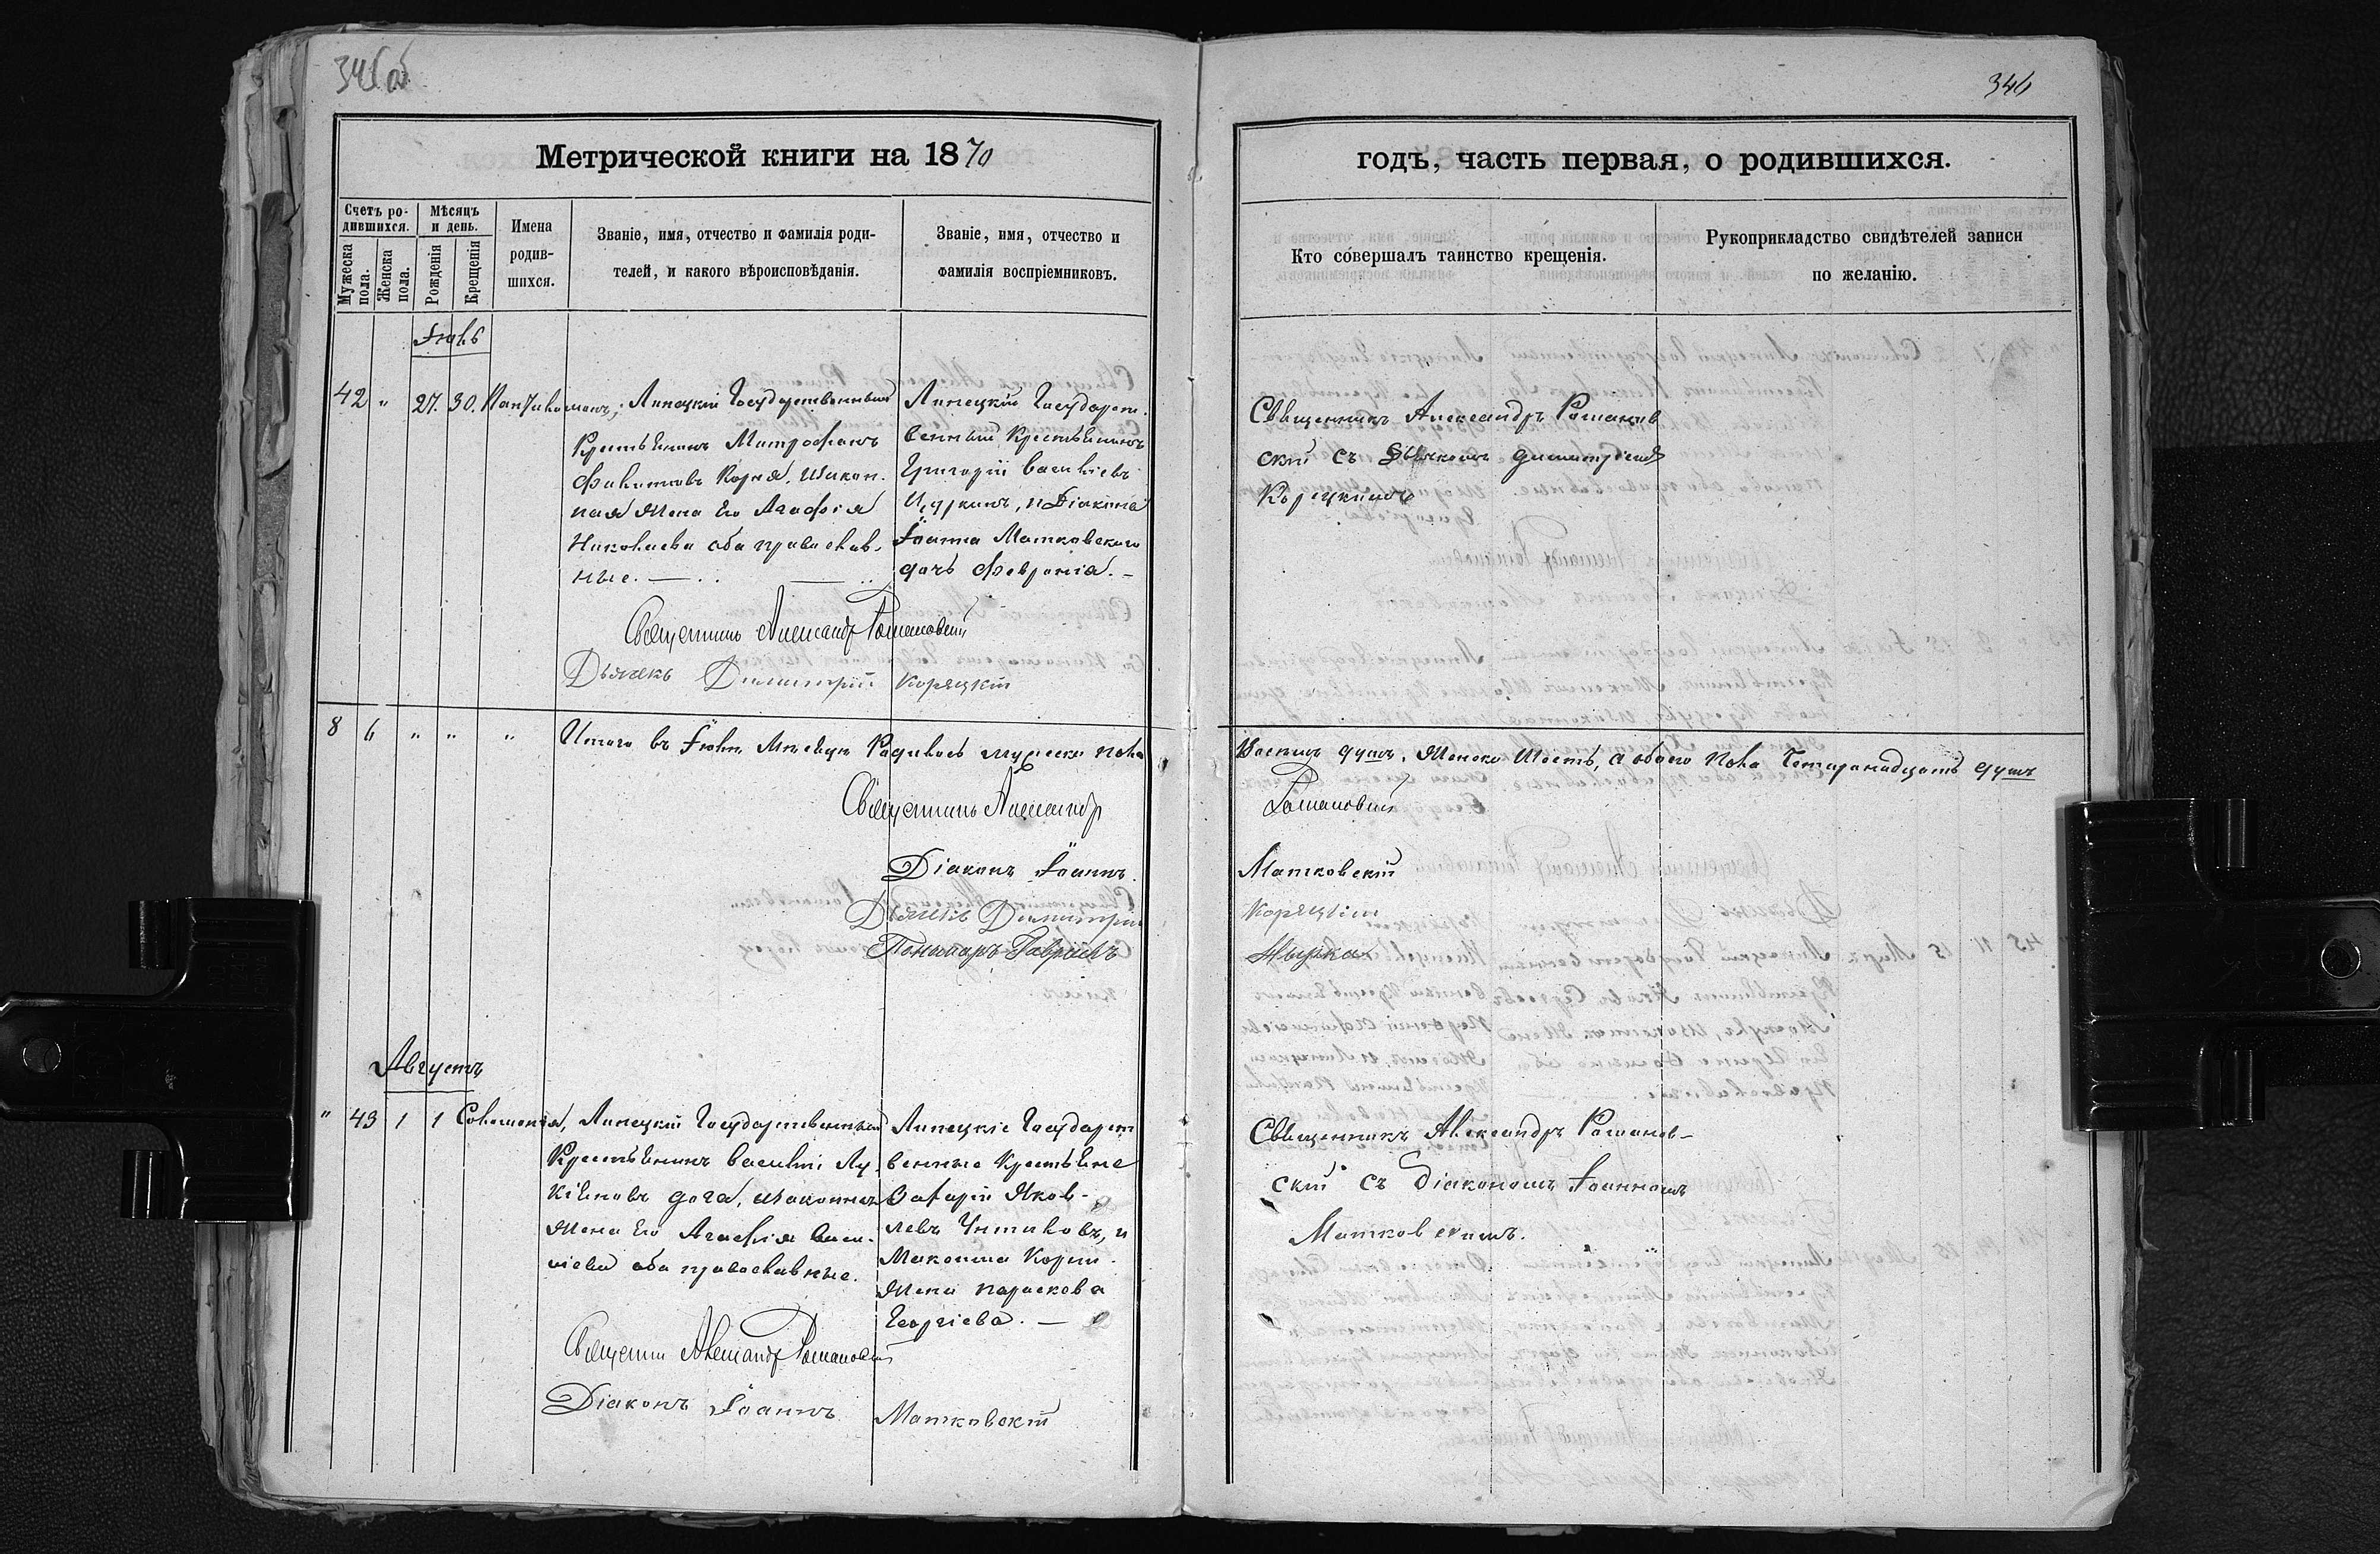 346
Метрической книги на 1870
годъ, часть первая, о родившихся.
Счетъ ро-
дившихся.
Мѣсяцъ
и день.
Мужеска
пола.
Женска
пола.
Рожденія
Крещенія
Имена
родив-
шихся.
Званіе, имя, отчество и фамилія роди-
телей, и какого вѣроисповѣданія.
Званіе, имя, отчество и
фамилія воспріемниковъ.
Кто совершалъ таинство крещенія.
Рукоприкладство свидѣтелей записи
по желанію.
Іюль
42 " 27. 30. Пантилимонъ;
Липецкій Государственный
Крестьянинъ Митрофанъ
Филиповъ Корня, и закон.
ная жена его Агафія
Николаева оба православ.
ные.
Липецкій Государст.
венный Крестьянинъ
Григорій Василіевъ
Цуркинъ, и Діакона
Іоанна Матковскаго
дочь Февронія. –
Священникъ Александръ Романов
скій съ Дьячкомъ Димитріемъ
Корецкимъ
Священникъ Александръ Романовскій
Дьячекъ Димитрій Корецкій
8 6 " " " Итого въ Іюлѣ Мѣсяцѣ Родилось мужеска пола
Восемь душъ, Женска Шесть, а обоего пола Четырнадцать душъ
Священникъ Александръ Романовскій
Діаконъ Іоаннъ Матковскій
Дьячекъ Димитрій Корецкій
Пономаръ Гавріилъ
Августъ
" 43 1 1 Соломонія,
Липецкій Государственный
Крестьянинъ Василій Лу.
кіяновъ дога, и законная
жена его Агафія Васи.
ліева оба православные.
Липецкіе Государст
венные Крестьяне
Яков-
левъ и
Максима Корни
жена Параскова
Георгіева. –
Священникъ Александръ Романов-
скій съ Діакономъ Іоанномъ
Матковскимъ.
Священникъ Александръ Романовскій
Діаконъ Іоаннъ Матковскій